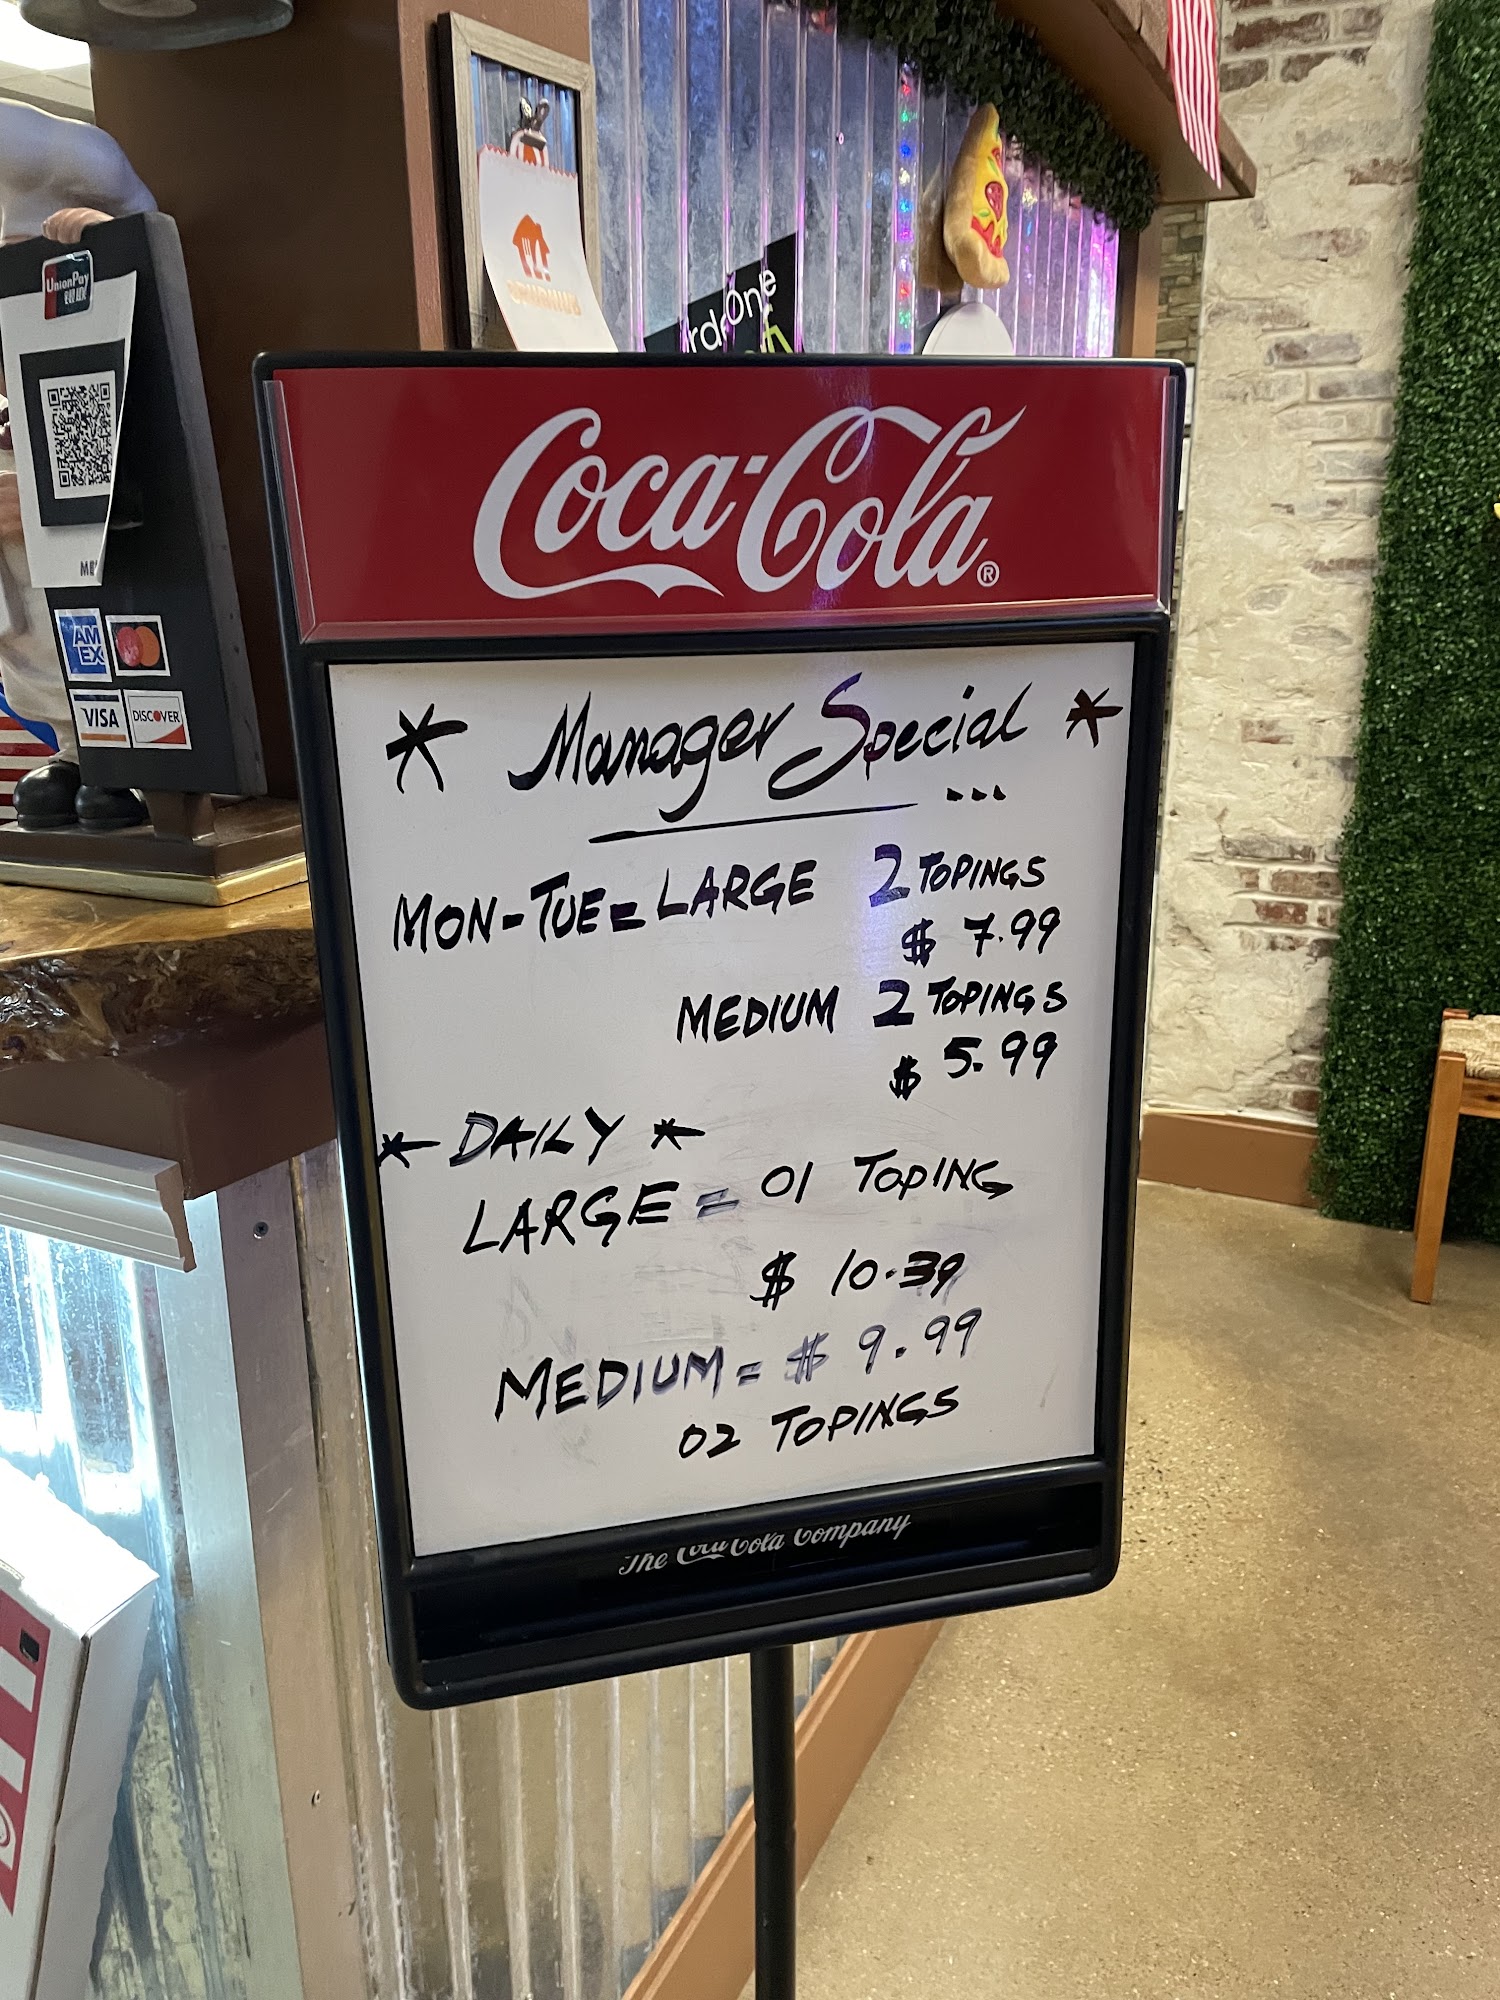 UnionPay
银联
GRUBHUB
One
AM
EX
VISA
DISCOVER
Coca-Cola®
* Manager Special *
...
MON-TUE = LARGE 2 TOPINGS
$ 7.99
MEDIUM 2 TOPINGS
$ 5.99
* DAILY *
LARGE = 01 TOPING
$ 10.39
MEDIUM = $ 9.99
02 TOPINGS
The Coca-Cola Company